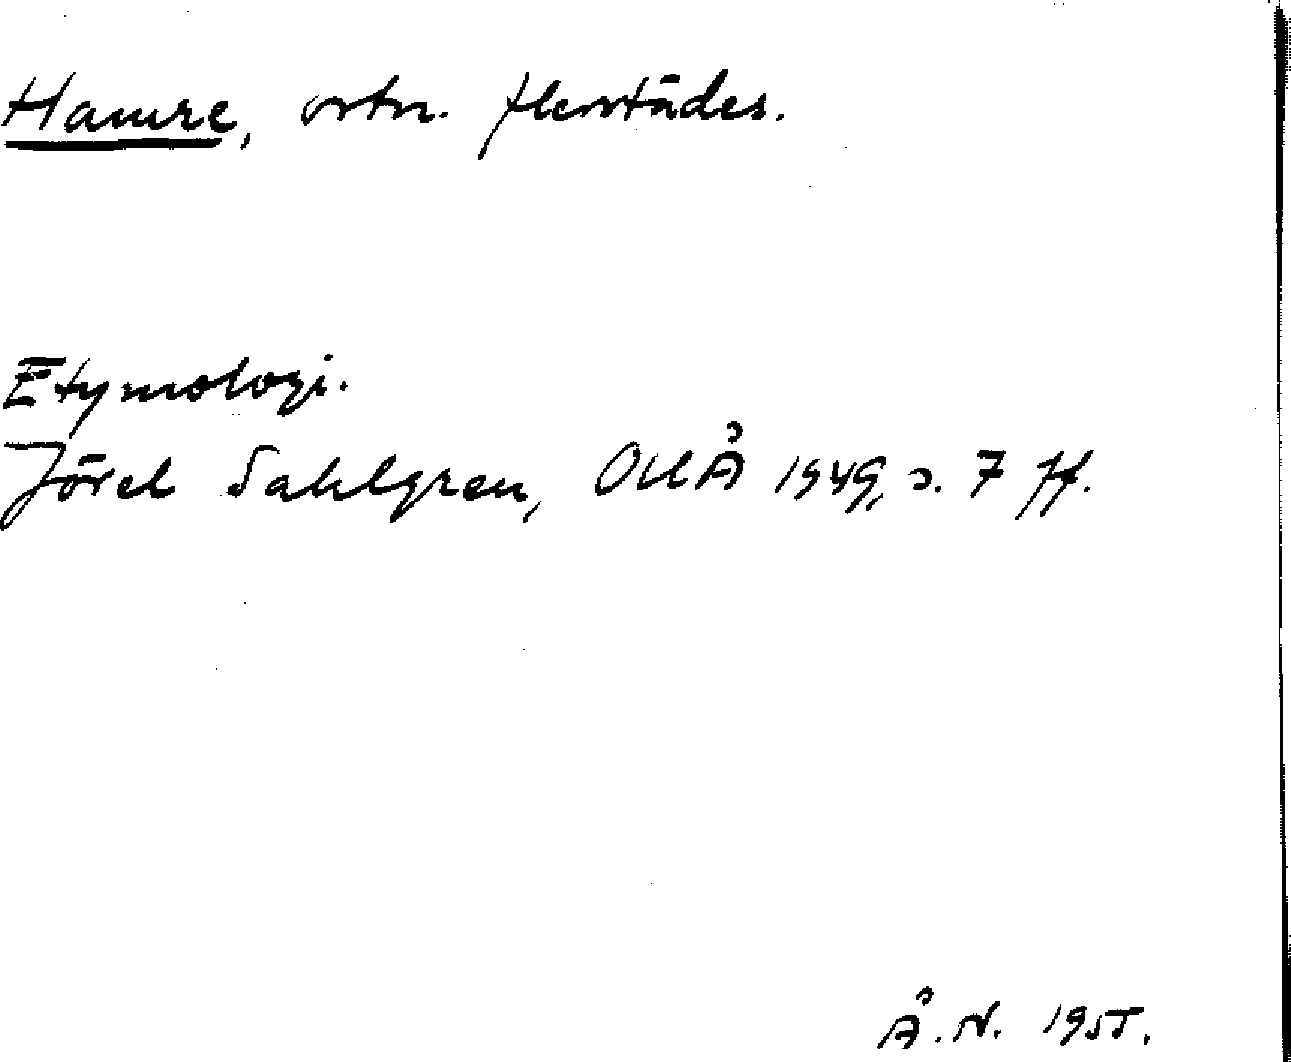 Hamre, ortn. flerstädes.
Etymologi.
Jöran Sahlgren, OUÅ 1949, s. 7 ff.
Å. N. 1955.